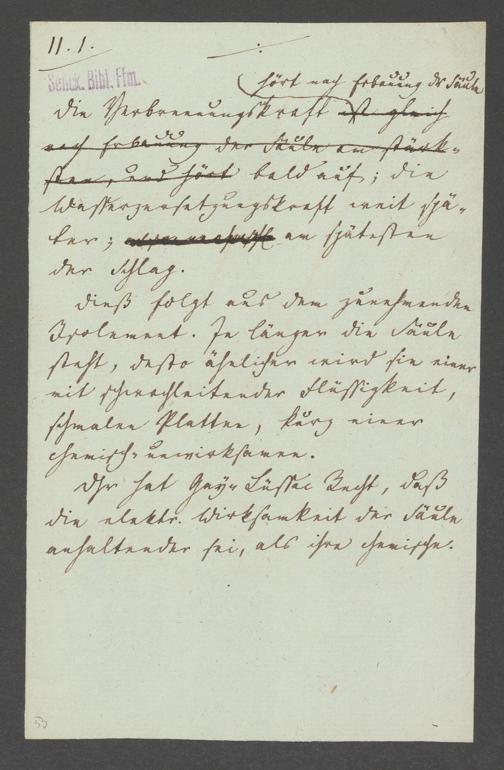 11. 1.
Senck. Bibl. Ffm.
hört nach Erbauung der Säule
Die Verbrennungskraft ist gleich
nach Erbauung der Säule am stärk-
sten, und hört bald auf; die
Wasserzersetzungskraft weit spä-
ter; am spätesten
der Schlag.
Dieß folgt aus dem zunehmenden
Isolement. Je länger die Säule
steht, desto ähnlicher wird sie einer
mit schwachleitender Flüssigkeit,
schmalen Platten, kurz einer
chemisch-unwirksamen.
Dhr hat Gay-Lüssac Recht, daß
die elektr. Wirksamkeit der Säule
anhaltender sei, als ihre chemische.
53